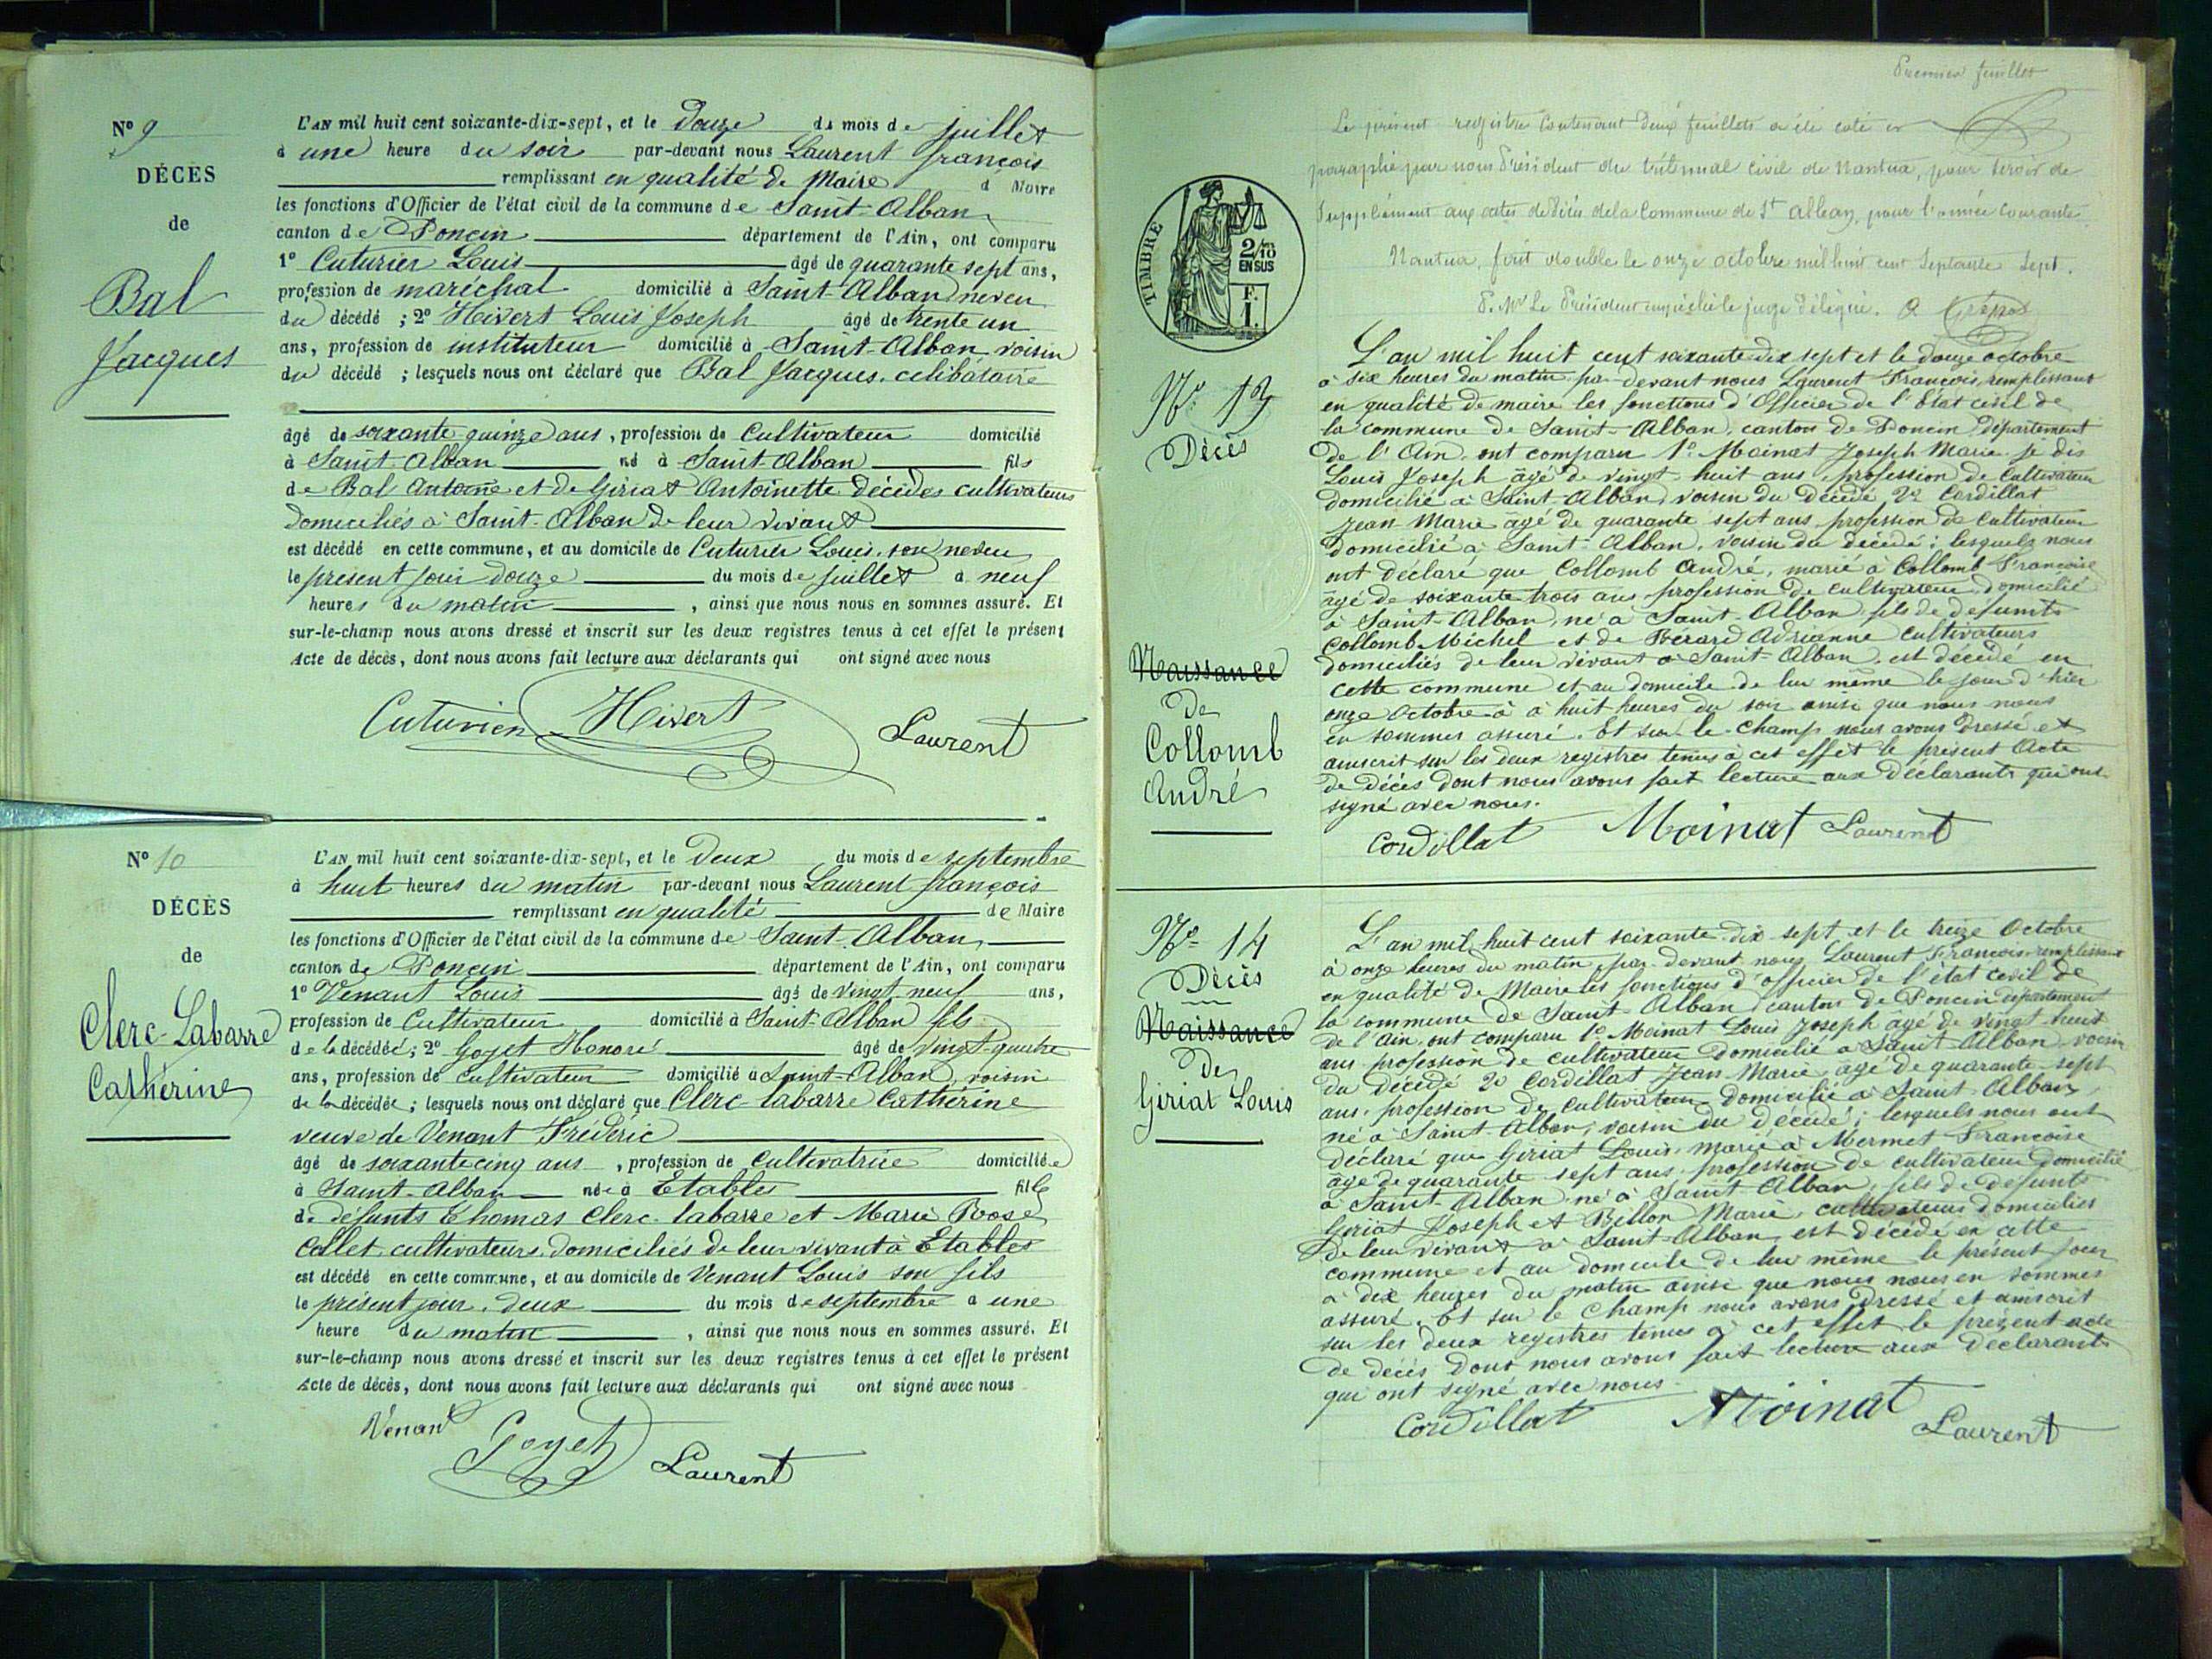 N° 9
DÉCÈS
de
Bal
Jacques
L'AN mil huit cent soixante-dix-sept, et le Douze du mois de juillet
à une heure du soir par-devant nous Laurent françois
remplissant en qualité de Maire d Maire
les fonctions d'Officier de l'état civil de la commune de Saint-Alban
canton de Poncin département de l'Ain, ont comparu
1° Cuturier Louis âgé de quarante sept ans,
profession de maréchal domicilié à Saint-Alban neveu
du décédé ; 2° Hivert Louis Joseph âgé de trente un
ans, profession de instituteur domicilié à Saint-Alban voisin
du décédé ; lesquels nous ont déclaré que Bal Jacques. célibataire
âgé de soixante quinze ans, profession de Cultivateur domicilié
à Saint-Alban né à Saint-Alban fils
de Bal Antoine et de Giriat Antoinette décédés cultivateurs
domiciliés à Saint-Alban de leur vivant
est décédé en cette commune, et au domicile de Cuturier Louis, son neveu
le présent jour douze du mois de juillet à neuf
heures du matin, ainsi que nous nous en sommes assuré. Et
sur-le-champ nous avons dressé et inscrit sur les deux registres tenus à cet effet le présent
Acte de décès, dont nous avons fait lecture aux déclarants qui ont signé avec nous
Cuturier Hivert Laurent
N° 10
DÉCÈS
de
Clerc-Labarre
Catherine
L'AN mil huit cent soixante-dix-sept, et le Deux du mois de septembre
à huit heures du matin par-devant nous Laurent françois
remplissant en qualité de Maire
les fonctions d'Officier de l'état civil de la commune de Saint-Alban
canton de Poncin département de l'Ain, ont comparu
1° Venant Louis âgé de vingt neuf ans,
profession de Cultivateur domicilié à Saint-Alban fils
de la décédée ; 2° Goyet Honoré âgé de vingt-quatre
ans, profession de cultivateur domicilié à Saint-Alban, voisin
de la décédée ; lesquels nous ont déclaré que Clerc-labarre Catherine
veuve de Venant Fréderic
âgé de soixante cinq ans, profession de Cultivatrice domiciliée
à Saint-Alban née à Etables fille
de défunts Thomas Clerc-labarre et Marie Rose
Collet cultivateurs domiciliés de leur vivant à Etables
est décédé en cette commune, et au domicile de Venant Louis son fils
le présent jour. deux du mois de septembre à une
heure du matin, ainsi que nous nous en sommes assuré. Et
sur-le-champ nous avons dressé et inscrit sur les deux registres tenus à cet effet le présent
Acte de décès, dont nous avons fait lecture aux déclarants qui ont signé avec nous
Venant Goyet Laurent
Premier feuillet
Le présent registre contenant deux feuillets a été coté et
paraphé par nous Président du tribunal civil de Nantua, pour servir de
Supplément aux actes de décès de la Commune de St alban, pour l'année courante.
Nantua, fait double le onze octobre mil huit cent Septante Sept.
P. Mr Le Président empêché le juge délégué.
TIMBRE
2/10 EN SUS
F. 1.
N° 13
Décès
Naissance
De
Collomb
André
L'an mil huit cent soixante-dix sept et le douze octobre
à six heures du matin par-devant nous Laurent François, remplissant
en qualité de maire les fonctions d'Officier de l'Etat civil de
la commune de Saint-Alban, canton de Poncin département
de l'Ain, ont comparu 1° Moinat Joseph Marie je dis
Louis Joseph âgé de vingt huit ans profession de Cultivateur
domicilié à Saint-Alban, voisin du décédé, 2° Cordillat
Jean Marie âgé de quarante sept ans profession de Cultivateur
domicilié à Saint-Alban, voisin du décédé ; lesquels nous
ont déclaré que Collomb André, marié à Collomb Françoise
âgé de soixante trois ans profession de cultivateur domicilié
à Saint-Alban né à Saint-Alban, fils de défunts
Collomb Michel et de Adrianne cultivateurs
domiciliés de leur vivant à Saint-Alban, est décédé en
cette commune et au domicile de lui même le jour d'hier
onze Octobre à à huit heures du soir ainsi que nous nous
en sommes assuré. Et sur-le-champ nous avons dressé et
ainscrit sur les deux registres tenus à cet effet le présent Acte
de décès dont nous avons fait lecture aux déclarants qui ont
signé avec nous.
Cordillat Moinat Laurent
N° 14
Décès
Naissance
De
Giriat Louis
L'an mil huit cent soixante-dix sept et le treize Octobre
à onze heures du matin, par-devant nous Laurent François remplissant
en qualité de Maire les fonctions d'officier de l'état civil de
la commune de Saint-Alban, canton de Poncin département
de l'Ain, ont comparu 1° Moinat Louis Joseph âgé de vingt-huit
ans profession de cultivateur domicilié à Saint Alban, voisin
du décédé 2° Cordillat Jean Marie, âgé de quarante sept
ans, profession de cultivateur domicilié à Saint-Alban
né à Saint-Alban, voisin du décédé ; lesquels nous ont
déclaré que Giriat Louis, marié à Mermet Françoise
âgé de quarante sept ans, profession de cultivateur domicilié
à Saint-Alban, né à Saint-Alban, fils de défunts
Giriat Joseph et Billon Marie, cultivateurs domiciliés
de leur vivant à Saint-Alban, est décédé en cette
commune et au domicile de lui même le présent jour
à dix heures du matin ainsi que nous nous en sommes
assuré. Et sur le champ nous avons dressé et ainscrit
sur les deux registres tenus à cet effet le présent acte
de décès dont nous avons fait lecture aux déclarants
qui ont signé avec nous
Cordillat Moinat Laurent